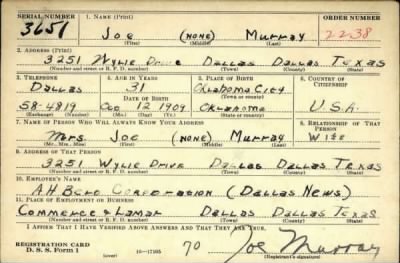 SERIAL NUMBER 1. NAME (Print) ORDER NUMBER
3651 Joe (NONE) Murray 2238
(First) (Middle) (Last)
2. ADDRESS (Print)
3251 Wylie Drive Dallas Dallas Texas
(Number and street or R. F. D. number) (Town) (County) (State)
3. TELEPHONE 4. AGE IN YEARS 5. PLACE OF BIRTH 6. COUNTRY OF CITIZENSHIP
Dallas 31 Oklahoma City
DATE OF BIRTH
58-4819 Dec 12 1909 Oklahoma U.S.A.
(Exchange) (Number) (Mo.) (Day) (Yr.) (State or country)
7. NAME OF PERSON WHO WILL ALWAYS KNOW YOUR ADDRESS 8. RELATIONSHIP OF THAT PERSON
Mrs. Joe (NONE) Murray Wife
(Mr., Mrs., Miss) (First) (Middle) (Last)
9. ADDRESS OF THAT PERSON
3251 Wylie Drive Dallas Dallas Texas
(Number and street or R. F. D. number) (Town) (County) (State)
10. EMPLOYER'S NAME
A.H. Belo Corporation (Dallas News)
11. PLACE OF EMPLOYMENT OR BUSINESS
Commerce & Lamar Dallas Dallas Texas
(Number and street or R. F. D. number) (Town) (County) (State)
I AFFIRM THAT I HAVE VERIFIED ABOVE ANSWERS AND THAT THEY ARE TRUE.
REGISTRATION CARD
D. S. S. Form 1 (over) 16—17105 70 Joe Murray
(Registrant's signature)